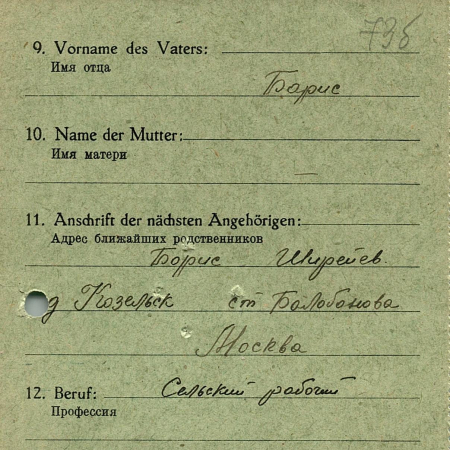 73б
9. Vorname des Vaters:
Имя отца
Барис
10. Name der Mutter:
Имя матери
—
11. Anschrift der nächsten Angehörigen:
Адрес ближайших родственников
Борис Ширеев.
д Козельск ст Балобанова
Москва
12. Beruf: Сельский рабочий
Профессия